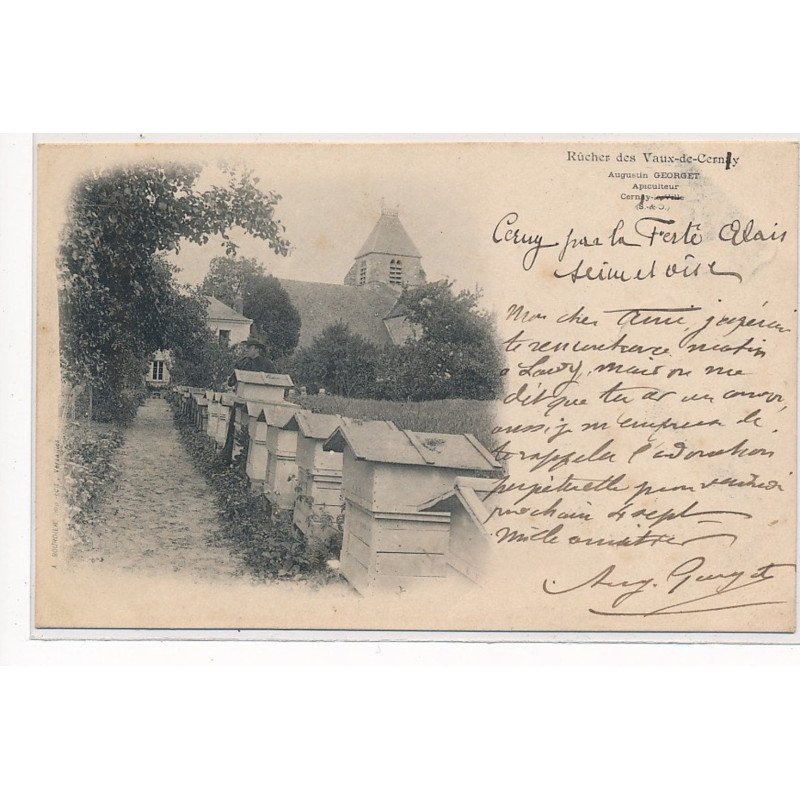 Rûcher des Vaux-de-Cernay
Augustin GEORGET
Apiculteur
Cernay-la-Ville
(S.-&-O.)
Cerny par la Ferté Alais
Seine et oise
Mon cher Ami j'espérais
te rencontrer ce matin
à mais on me
dit que tu as un convoi,
aussi je m'empresse de
te rappeler l'adoration
perpétuelle pour vendredi
prochain 4 sept
Mille amitiés
Aug. Georget
A. BOURDIER, VERSAILLES